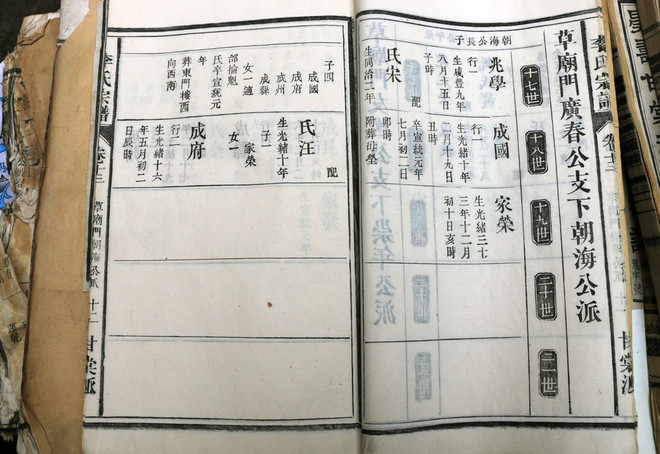 草廟門廣春公支下朝海公派
十七世
十八世
十九世
二十世
二一世
朝海公長子
兆學
行一
生咸豐九年
八月十五日
子時
配
氏宋
生同治二年
七月初二日
卯時
卒宣統元年
附葬母塋
成國
行一
生光緒十年
二月十九日
丑時
家榮
行一
生光緒三七
三年十二月
初十日亥時
子四
成國
成府
成州
成縣
女一適
部掄魁
氏卒宣統元
年
葬東門樓西
向西南
配
氏汪
生光緒十年
子一
家榮
女一
成府
行二
生光緒十六
年五月初二
日辰時
李氏宗譜
卷十三
草廟門朝海公派
十二
甘棠派